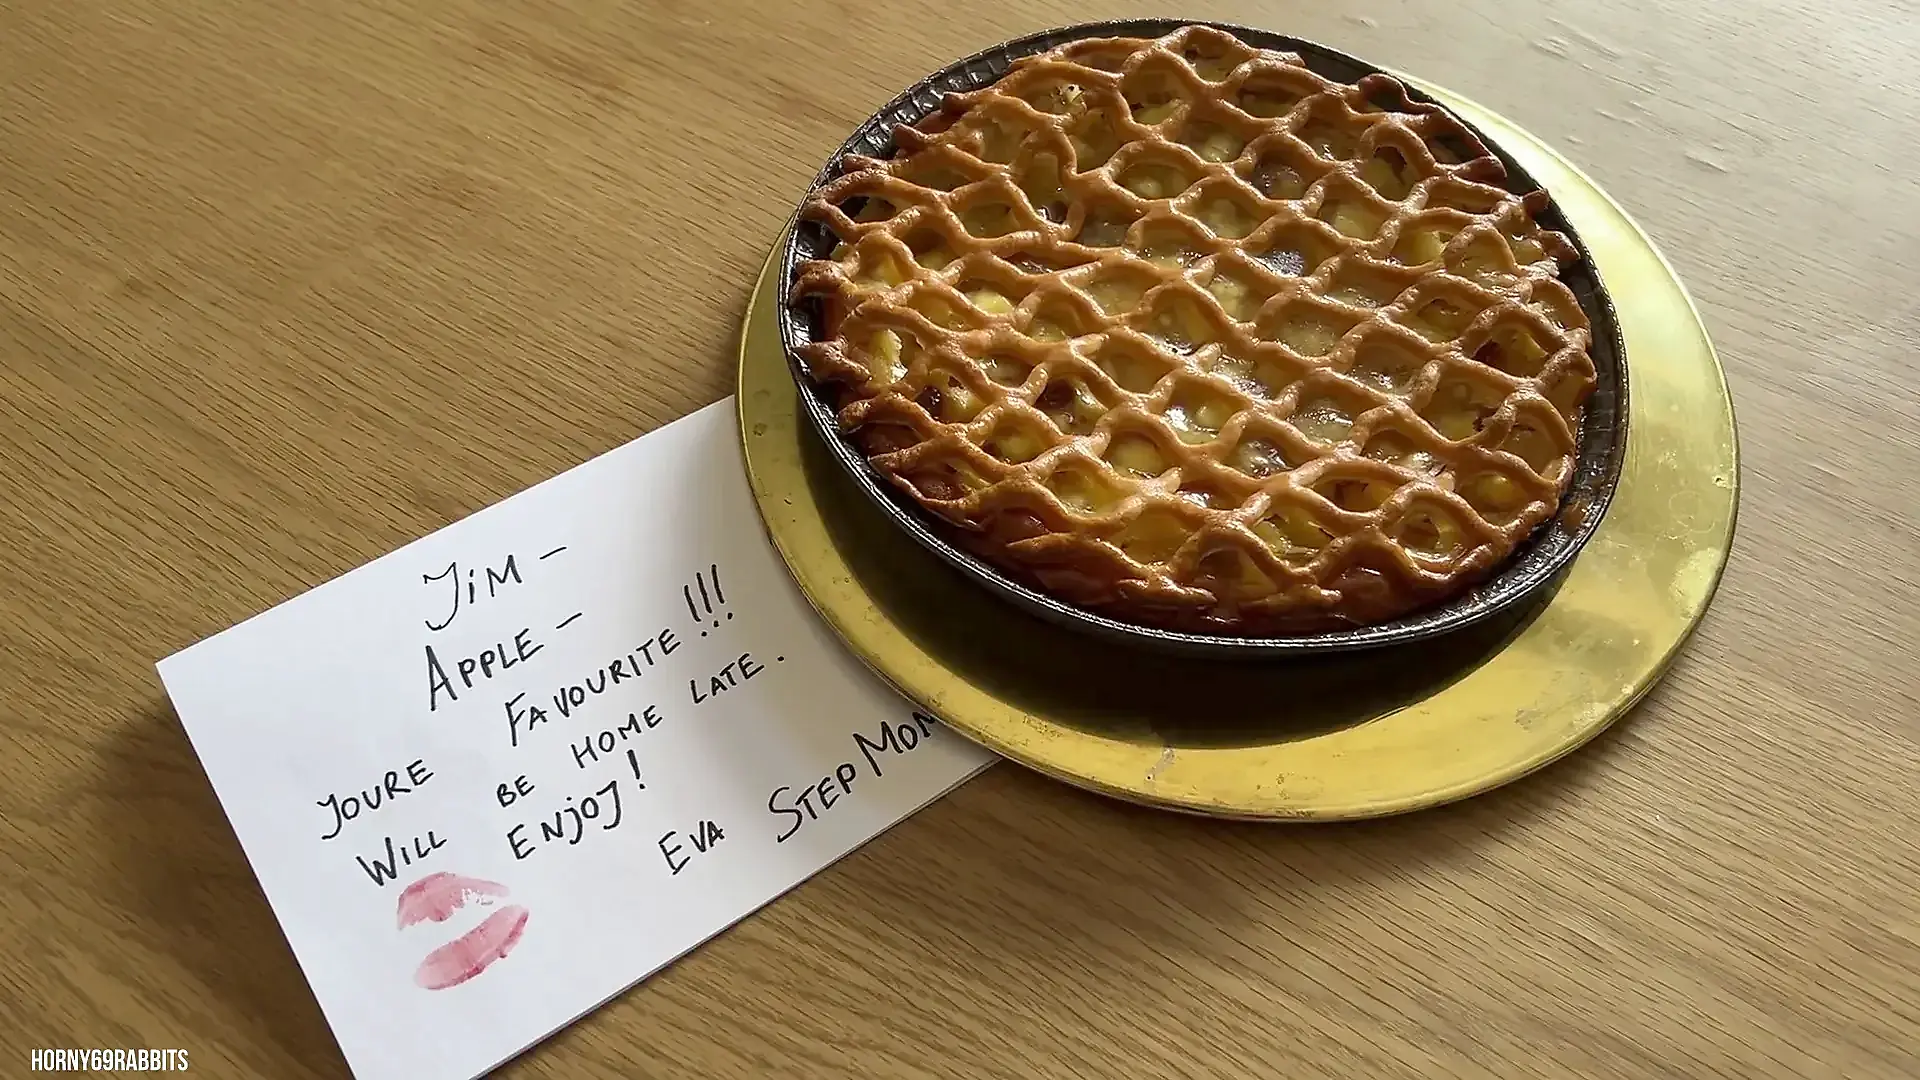 JiM -
APPLE -
YOURE FAVOURITE!!!
WILL BE HOME LATE.
ENJOY!
EVA STEP MOM
HORNY69RABBITS